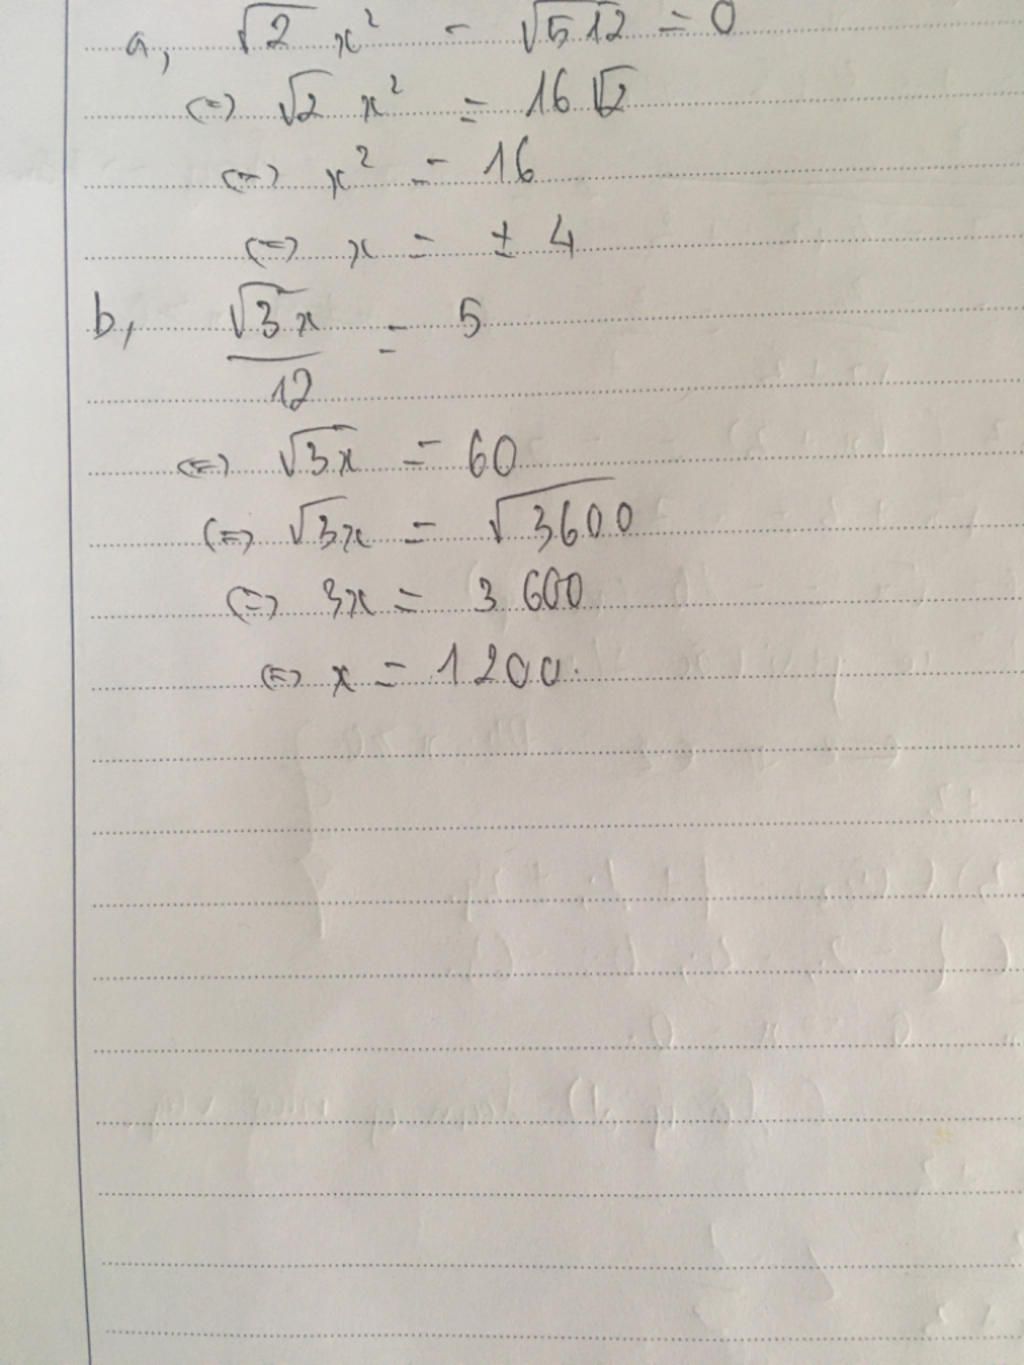 a, √2 x² - √512 = 0
(=) √2 x² = 16√2
(=) x² = 16
(=) x = ± 4
b, √3x / 12 = 5
(=) √3x = 60
(=) √3x = √3600
(=) 3x = 3600
(=) x = 1200.